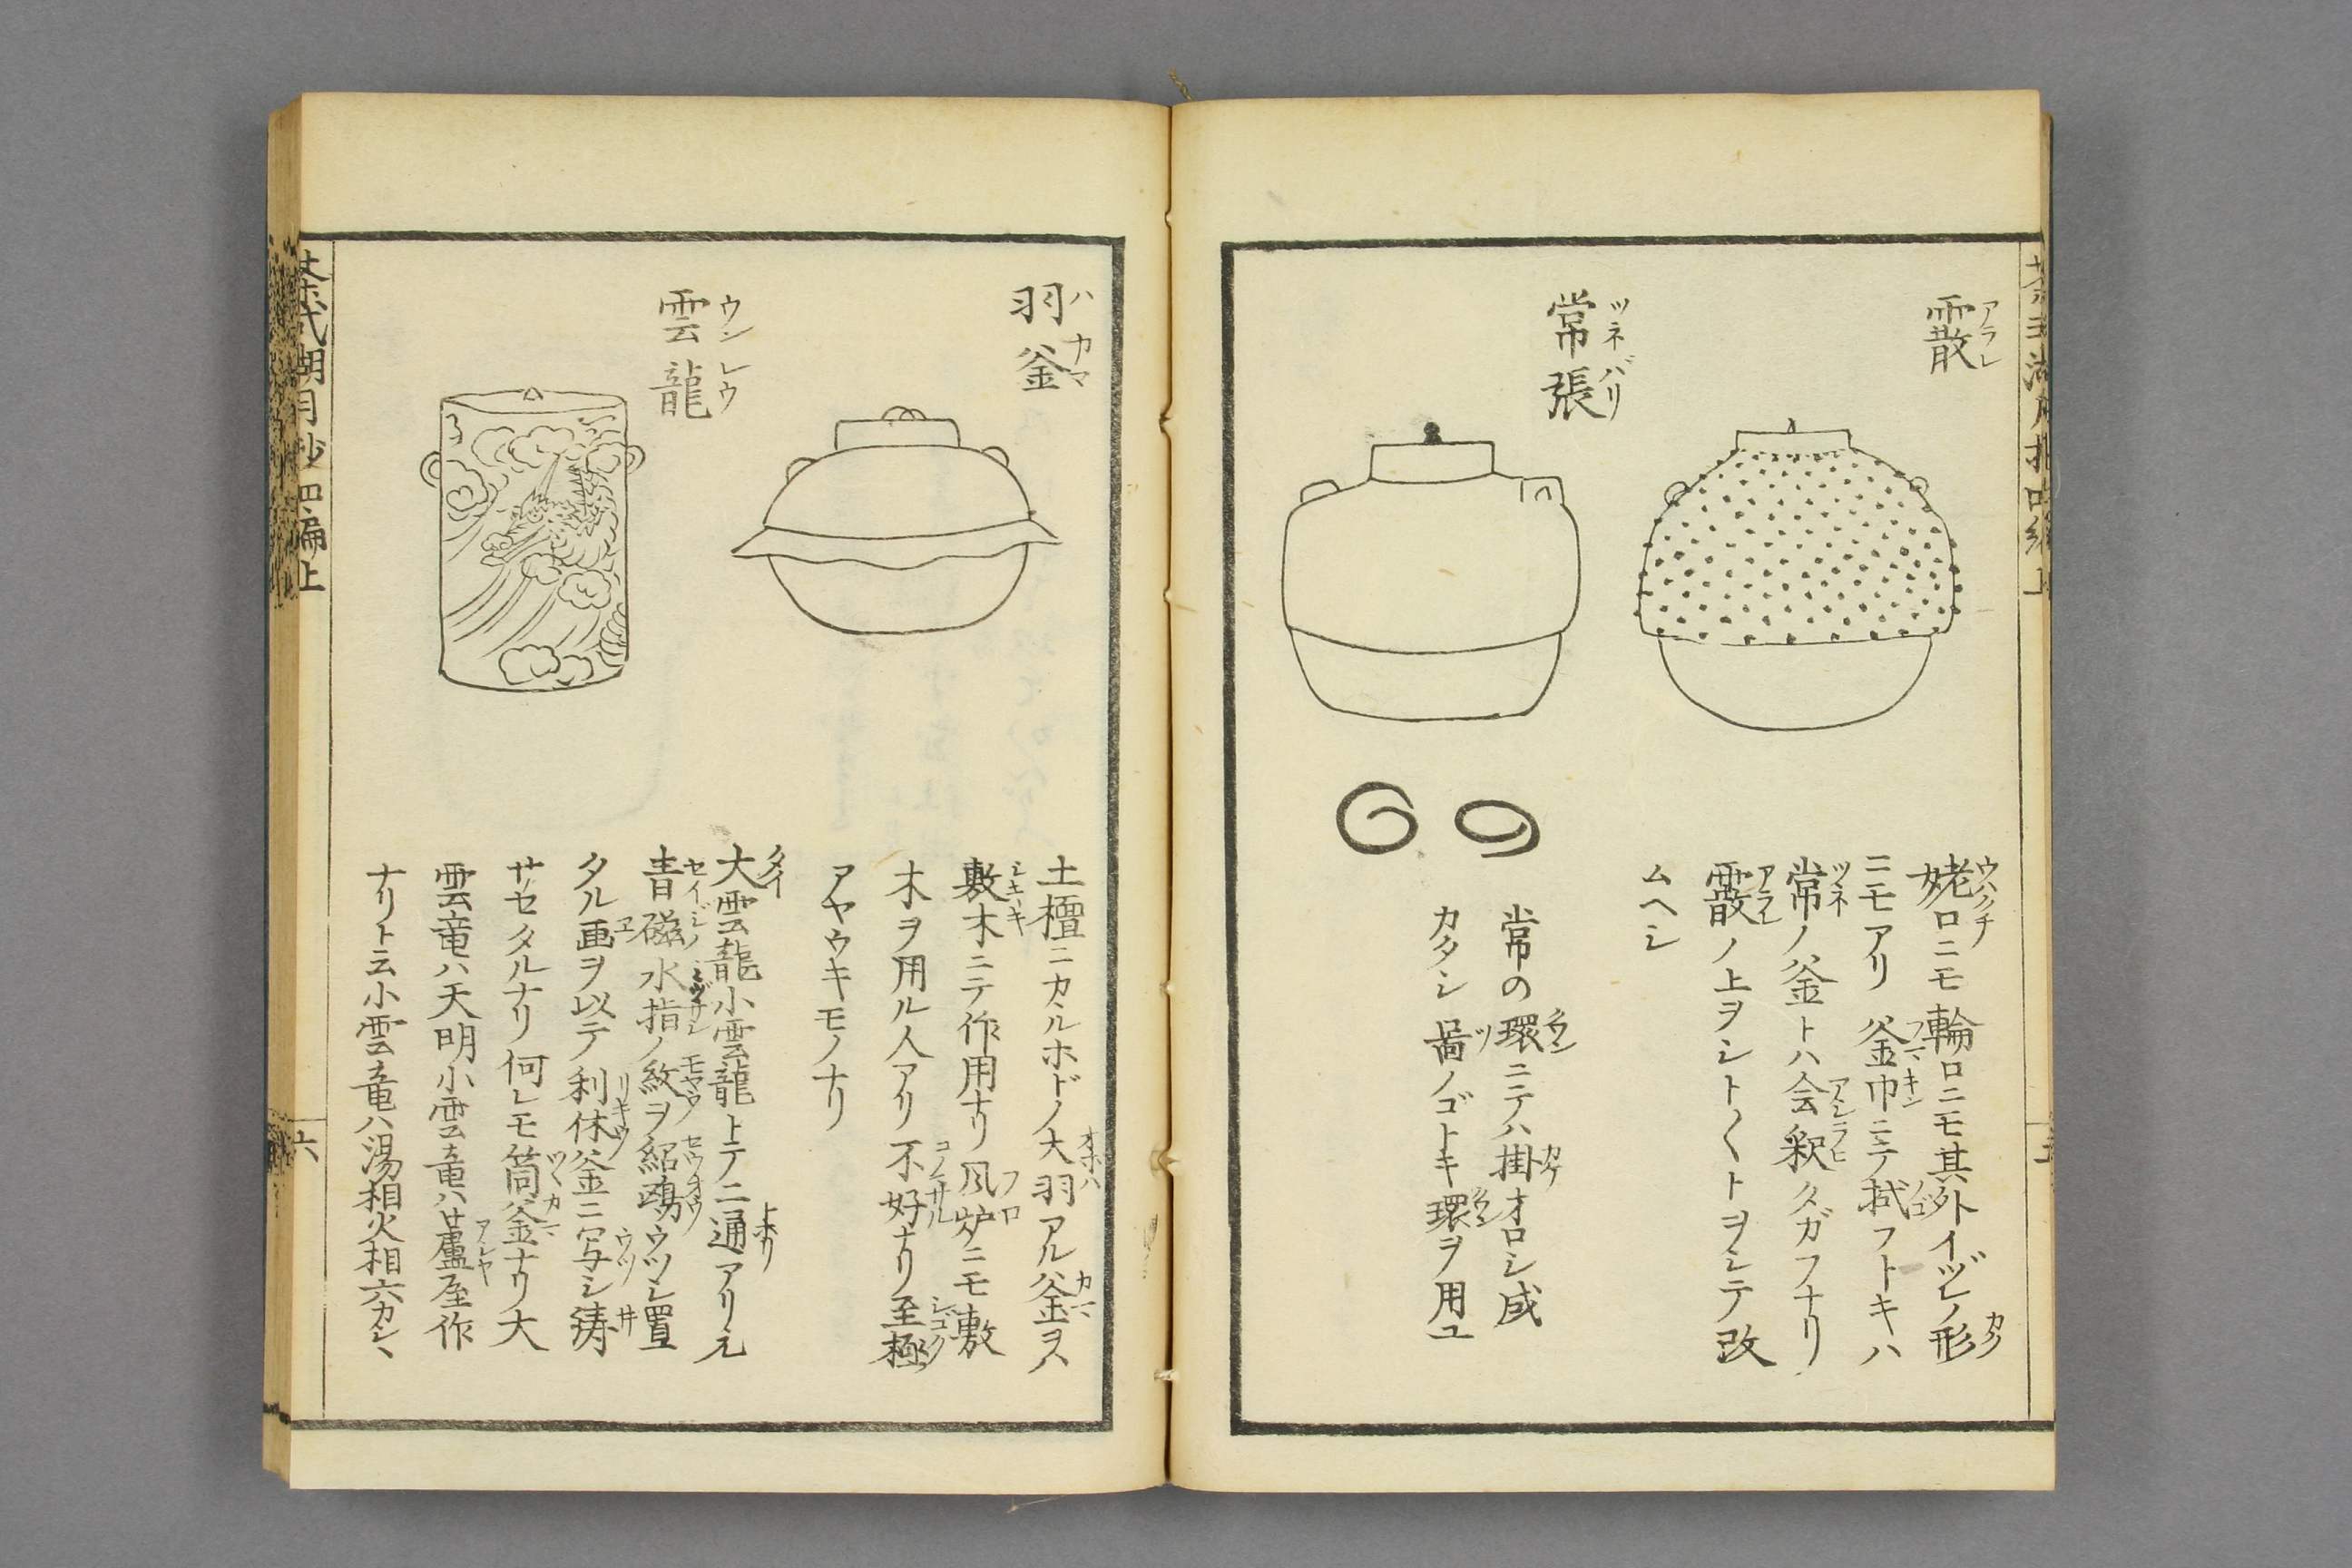 霰
アラレ
常張
ツネバリ
姥口ニモ輪口ニモ其外イヅレノ形
ニモアリ釜巾ニテ拭フトキハ
常ノ釜トハ会釈タガフナリ
霰ノ上ヲシト〳〵トヲシテ改
ムヘシ
常の環ニテハ掛オロシ成
カタシ啚ノゴトキ環ヲ用ユ
羽釜
ハカマ
雲龍
ウンレウ
土檀ニカヽルホドノ大羽アル釜ヲハ
敷木ニテ作用ナリ風炉ニモ敷
木ヲ用ル人アリ不好ナリ至極
アヤウキモノナリ
大雲龍小雲龍トテ二通アリ元
青磁水指ノ紋ヲ紹鴎ウツシ置
タル画ヲ以テ利休釜ニ写シ鋳
サセタルナリ何レモ筒釜ナリ大
雲竜ハ天明小雲竜ハ蘆屋作
ナリト云小雲竜ハ湯相火相六カシヽ
茶式湖月抄四編上
六